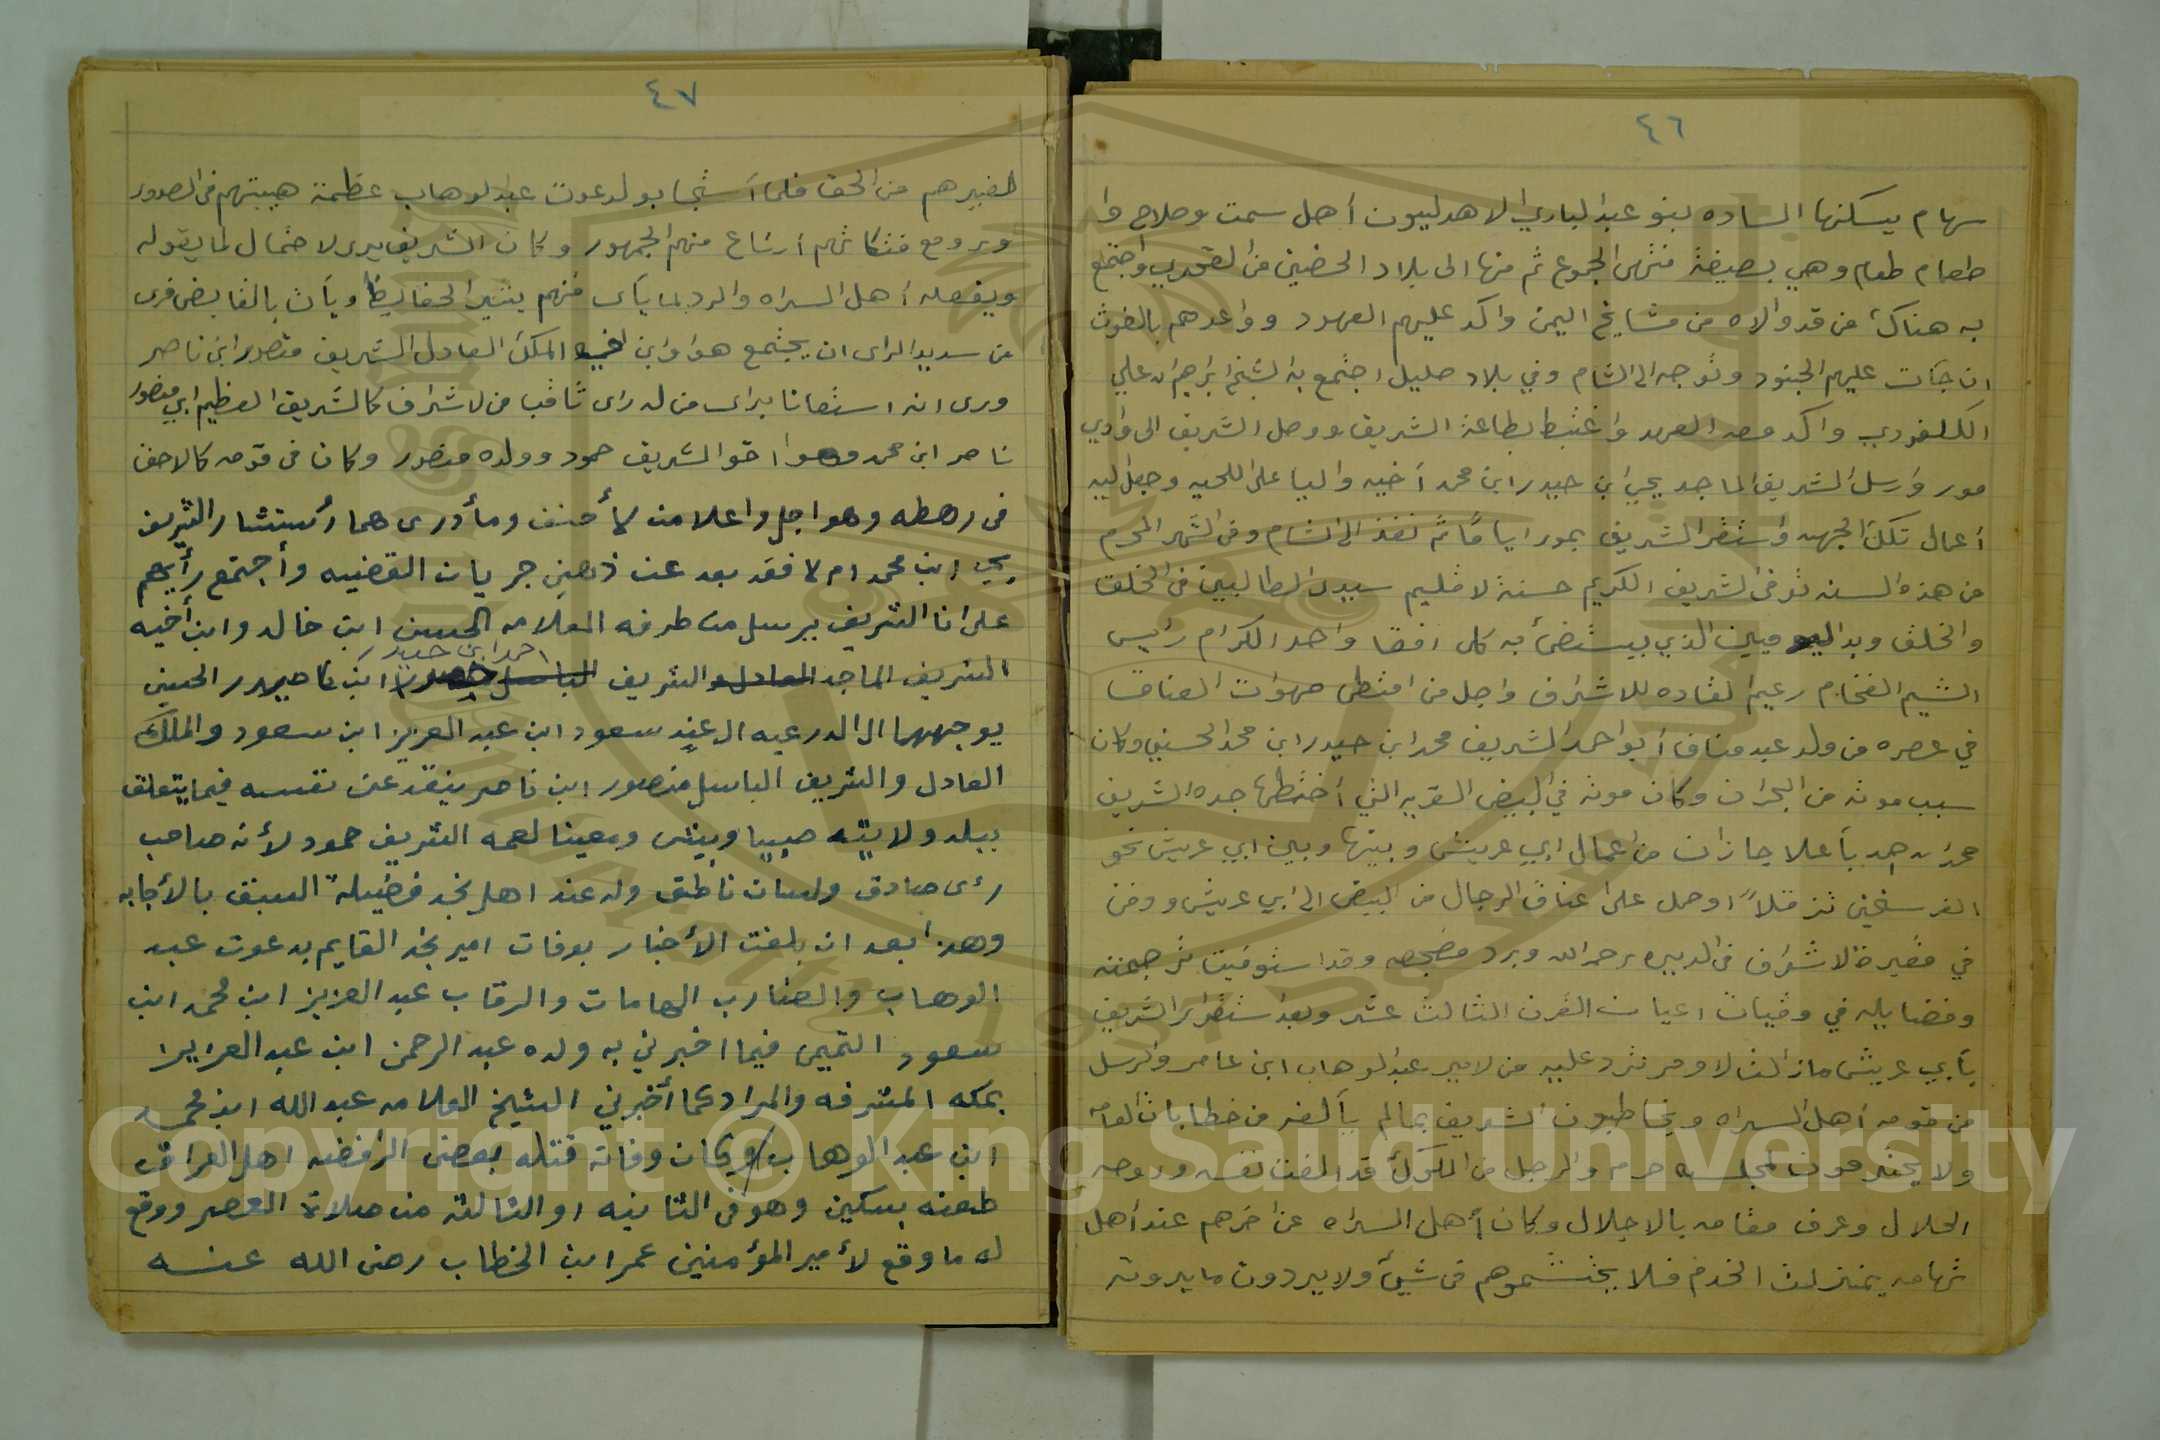 ٤٦
سهام يسكنها الساده بنو عبد الباري الاهدليون أهل سمت وصلاح وا
طعام طعام وهي بصيغة منتهى الجموع ثم منها الى بلاد الحضين من القحري واجتمع
به هناك من قد والاه من مشايخ اليمن واكد عليهم العهود وواعدهم بالغوث
ان جآت عليهم الجنود وتوجه الى الشام وفي بلاد صليل اجتمع به الشيخ ابراهيم ابن علي
الكلفودي واكد معه العهد واغتبط بطاعة الشريف ووصل الشريف الى وادي
مور وارسل الشريف الماجد يحي ابن حيدر ابن محمد أخيه واليا على اللحيه وجعل اليه
أعمال تلك الجهه واستقر الشريف بمور اياماً ثم نفذ الى الشام وفي الشهر المحرم
من هذه السنه توفى الشريف الكريم حسنة الاقليم سيد الطالبين في الخلق
والخلق وبدا الذي يستضئ به كل افق واحد الكرام رايس
الشيم الفخام زعيم القاده للاشراف واجل من امتطى صهوات العتاق
في عصره من ولد عبد مناف أبو احمد الشريف محمد ابن حيدر ابن محمد الحسني وكان
سبب موته من البحران وكان موته في البيض القريه التي أختطها جده الشريف
باعلا جازان من اعمال ابي عريش وبينها وبين ابي عريش نحو
الفرسخين او حمل على اعناق الرجال من البيض الى ابي عريش ودفن
في مقبرة الاشراف في الديره رحمه الله وبرد مضجعه وقد استوفيت ترجمته
وفضايله في وفيات اعيان القرن الثالث عشر وبعد استقرار الشريف
بأبي عريش مازالت الاوامر ترد عليه من الامير عبد الوهاب ابن عامر وارسل
من قومه أهل السراه ويخاطبون الشريف بمالم يألفه من خطابات العامه
ولا يحترمون لمجلسه حرم والرجل من الملوك قد الفت نفسه وروحه
الحلال وعرف مقامه بالاجلال وكان أهل السراه عن اخرهم عند أهل
تهامه بمنزلت الخدم فلا يحتشموهم في شيئ ولا يردون ما يرونه
٤٧
لغيرهم من الحق فلما أستجابو لدعوت عبد الوهاب عظمة هيبتهم في الصدور
ويروع فتكاتهم أرتاع منهم الجمهور وكان الشريف يرى الاحتمال لما يقوله
ويفعله أهل السراه والرد لما يأت منهم يثير الحفايظ ويأت بالقايض فرى
من سديد الراى ان يجتمع هو وابن اخيه الملك العادل الشريف منصور ابن ناصر
ورى انه استعانا براى من له راى ثاقب من الاشراف كالشريف العظيم ابي منصور
ناصر ابن محمد وهو اخو الشريف حمود وولده منصور وكان في قومه كالاحنف
في رهطه وهو اجل واعلا من لأحنف وما أدرى هما رأستشار الشريف
يحي ابن محمد ام لا فقد بعد عن ذهني جريان القضيه وأجتمع رأيهم
على انا الشريف يرسل من طرفه العلامه الحسن ابن خالد وابن أخيه
الشريف الماجد العادل والشريف الباسل احمد ابن حيدر ابن ناصر حيدر الحسني
يوجههما الى الدرعيه الى عند سعود ابن عبد العزيز ابن سعود والملك
العادل والشريف الباسل منصور ابن ناصر ينقد عن نفسه فيما يتعلق
ببلد ولايته صبيا وبيش ومعينا لعمه الشريف حمود لأنه صاحب
رأى صادق ولسان ناطق وله عند اهل نجد فضيلة السبق بالأجابه
وهذا بعد ان بلغت الأخبار بوفات امير نجد القايم بدعوت عبد
الوهاب والضارب الهامات والرقاب عبد العزيز ابن محمد ابن
سعود التميمي فيما اخبرني به ولده عبد الرحمن ابن عبد العزيز
بمكه المشرفه والمراد كما أخبرني الشيخ العلامه عبد الله ابن محمد
ابن عبد الوهاب وكان وفاته قتله بعض الرافضه اهل العراق
طعنه بسكين وهو في الثانيه او الثالثه من صلاة العصر ووقع
له ما وقع لأمير المؤمنين عمر ابن الخطاب رضي الله عنه
Copyright © King Saud University